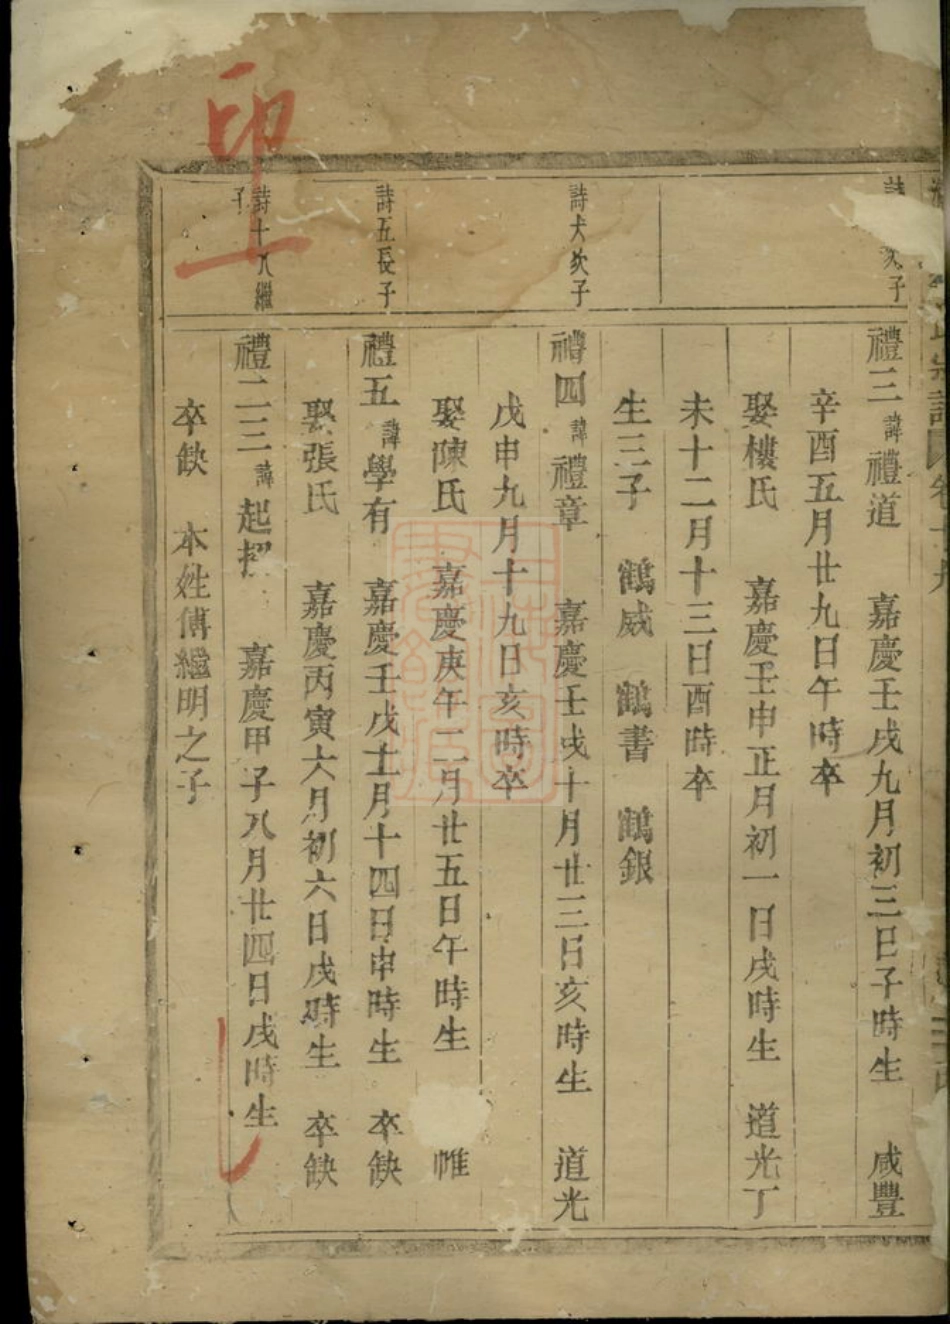 氏宗譜
卷十九
次子
禮三諱禮道 嘉慶壬戌九月初三日子時生 咸豐
辛酉五月廿九日午時卒
娶樓氏 嘉慶壬申正月初一日戌時生 道光丁
未十二月十三日酉時卒
生三子 鶴威 鶴書 鶴銀
詩大次子
禮四諱禮章 嘉慶壬戌十月廿三日亥時生 道光
戊申九月十九日亥時卒
娶陳氏 嘉慶庚午二月廿五日午時生 帷
詩五長子
禮五諱學有 嘉慶壬戌十一月十四日申時生 卒缺
娶張氏 嘉慶丙寅六月初六日戌時生 卒缺
詩十八繼子
禮二三諱起 嘉慶甲子八月廿四日戌時生
卒缺 本姓傅繼明之子
印